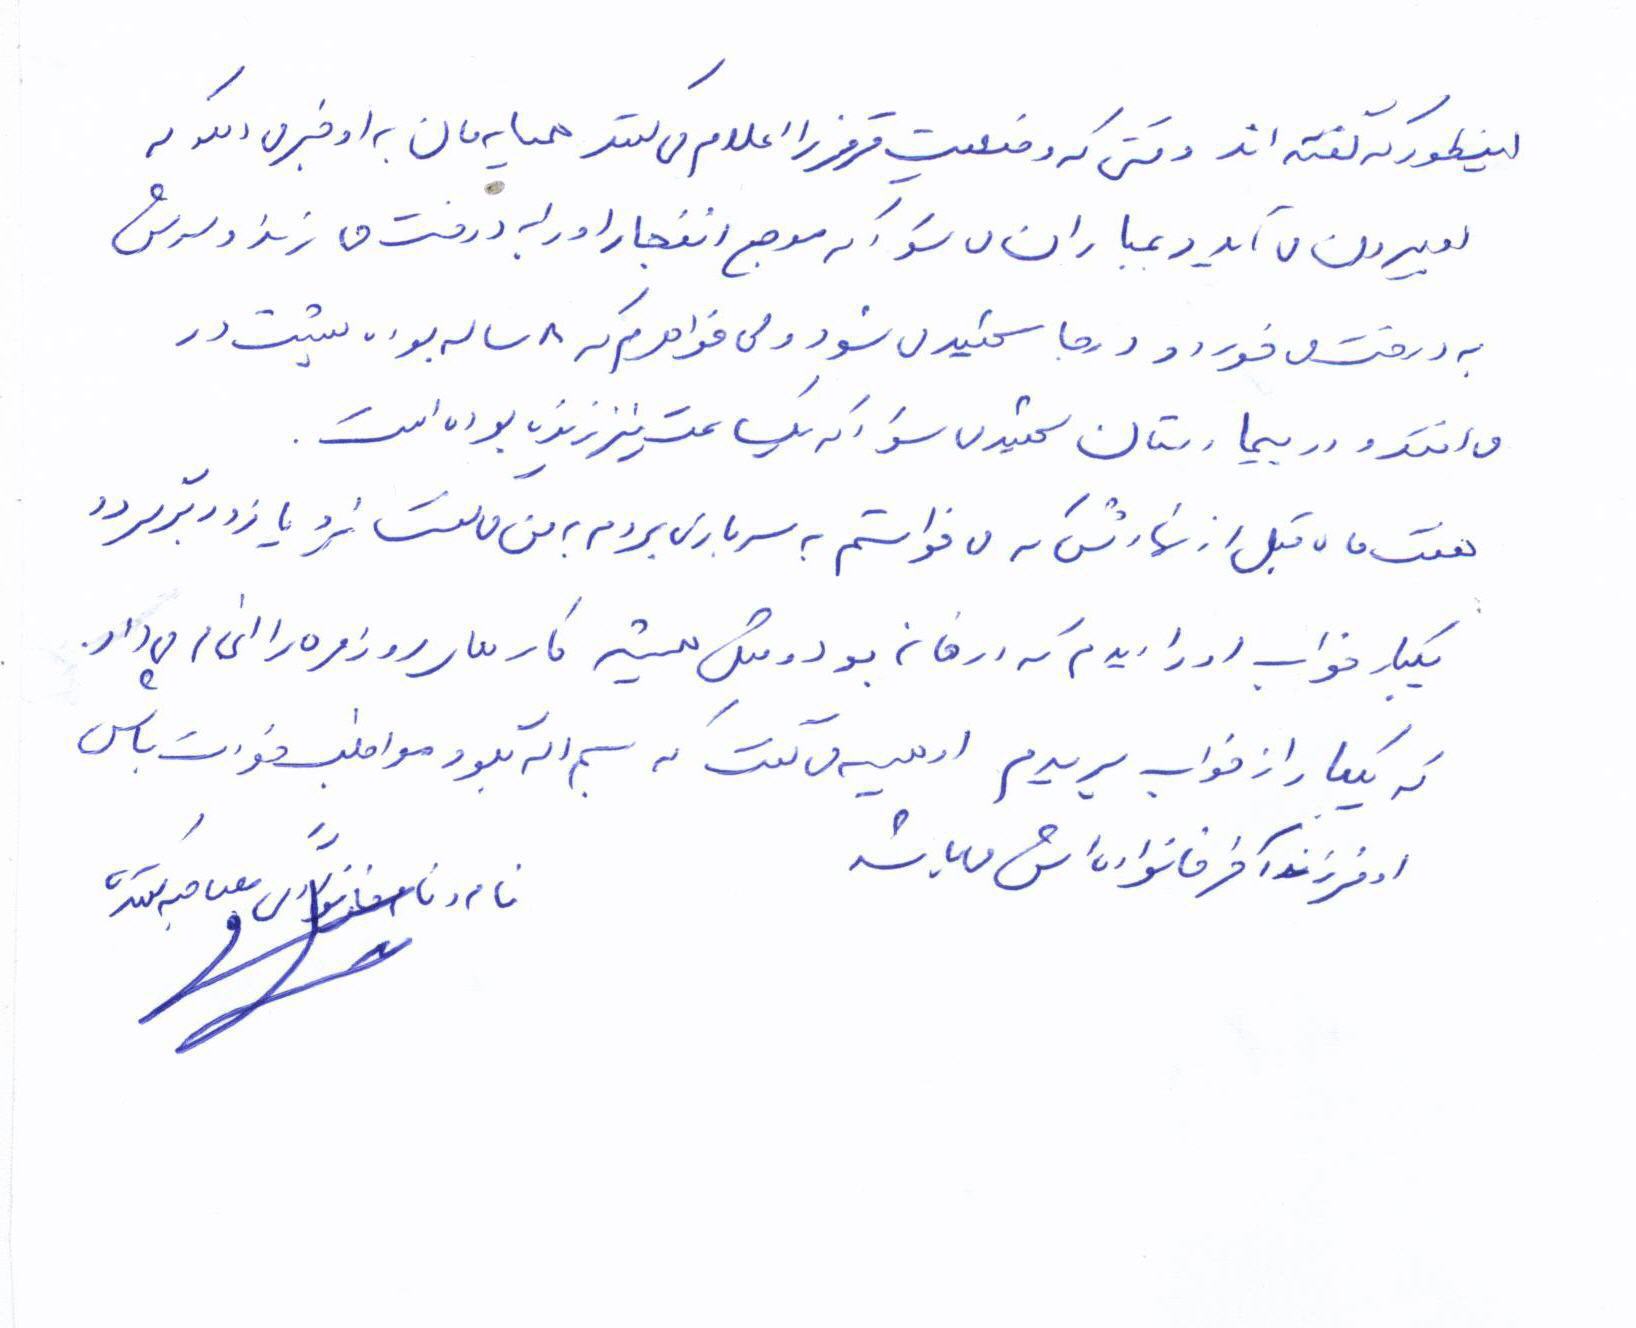 اینطور که گفته اند وقتی که وضعیت قرمز را اعلام می کنند همسایه مان به او خبر می دهد که
او بیرون می آید و بمباران می شود که موج انفجار او را به درخت می زند و سرش
به درخت می خورد و در جا شهید می شود ولی خواهرم که ۸ ساله بوده به پشت در
می افتد و در بیمارستان شهید می شود که یکساعت نیز زنده بوده است.
هفت ماه قبل از شهادتش که می خواستم به سربازی بروم به من می گفت نرو یا زودتر برگرد
یکبار خواب او را دیدم که در خانه بود و مثل همیشه کارهای روزمره را انجام می داد.
که یکبار از خواب پریدم او همیشه می گفت که بسم اله بگو و مواظب خودت باش
او فرزند آخر خانواده اش می باشد
نام و نام خانوادگی مصاحبه کننده